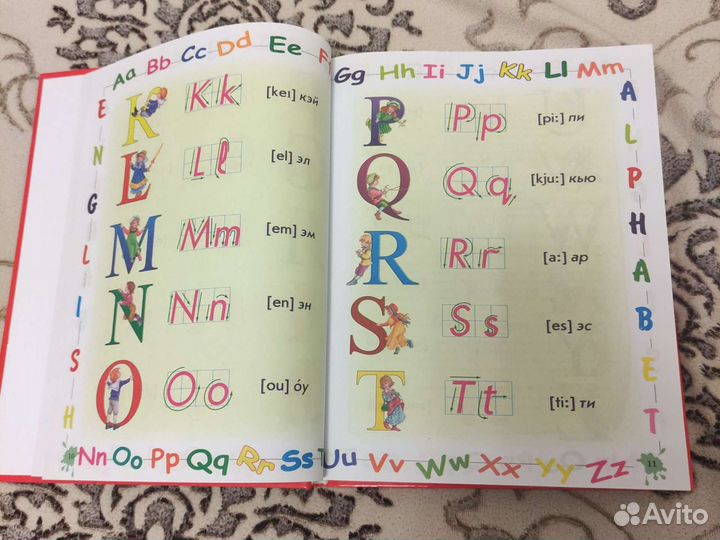 Aa Bb Cc Dd Ee F
ENGLISH
K Kk [keı] кэй
L Ll [el] эл
M Mm [em] эм
N Nn [en] эн
O Oo [ou] óу
10 Nn Oo Pp Qq Rr Ss
Gg Hh Ii Jj Kk Ll Mm
P Pp [pi:] пи
Q Qq [kju:] кью
R Rr [a:] ар
S Ss [es] эс
T Tt [ti:] ти
ALPHABET
Uu Vv Ww Xx Yy Zz 11
Avito